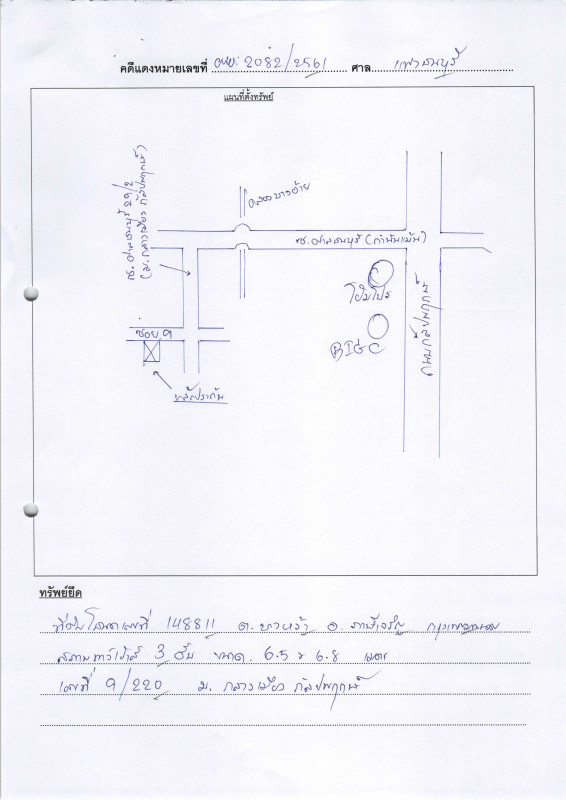 คดีแดงหมายเลขที่ ผบ. 2082/2561 ศาล แพ่งธนบุรี
แผนที่ตั้งทรัพย์
ซ.ฝั่งธนบุรี 29/2
(ม.กลางเมือง กัลปพฤกษ์)
คลองบางอ้าย
ซ.ฝั่งธนบุรี (กำนันแม้น)
โฮมโปร
BIGC
ถนนกัลปพฤกษ์
ซอย 9
หลักประกัน
ทรัพย์ยึด
ที่ดินโฉนดเลขที่ 148811 ต.บางหว้า อ.ภาษีเจริญ กรุงเทพมหานคร
3 ชั้น ขนาด 6.5 x 6.8 เมตร
เลขที่ 9/220 ม.กลางเมือง กัลปพฤกษ์